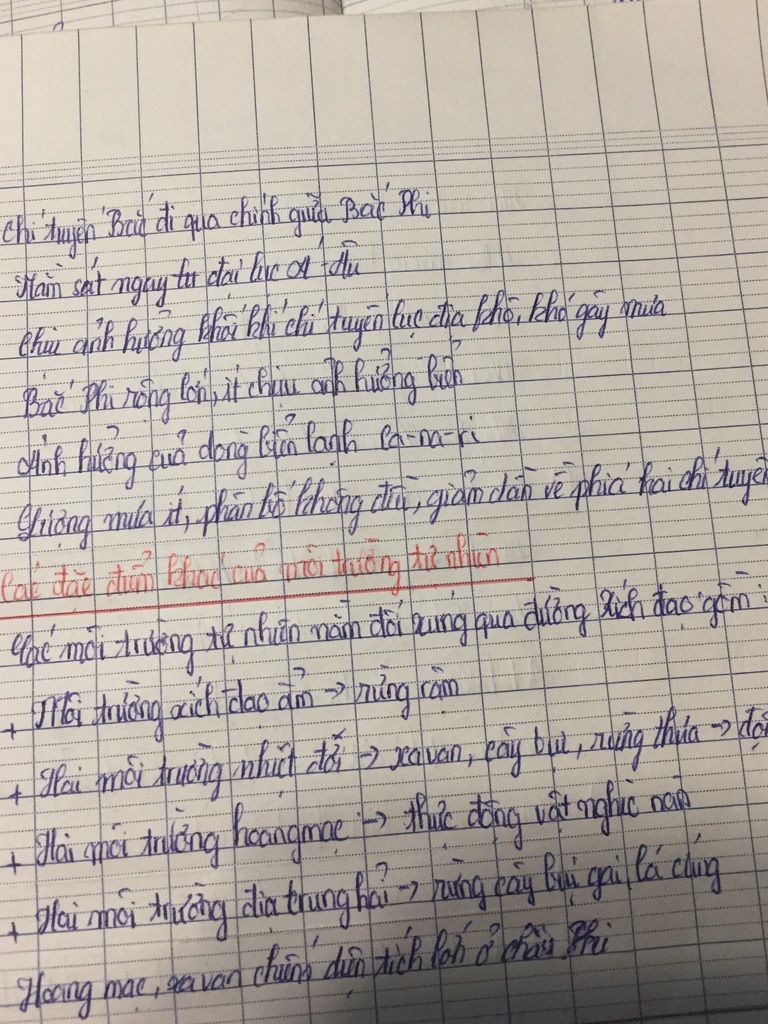 Chí tuyến Bắc đi qua chính giữa Bắc Phi
Nằm sát ngay từ đại lục Á-Âu
Chịu ảnh hưởng khối khí chí tuyến lục địa khô, khó gây mưa
Bắc Phi rộng lớn, ít chịu ảnh hưởng biển
Ảnh hưởng của dòng biển lạnh Ca-na-ri
Lượng mưa ít, phân bố không đều, giảm dần về phía hai chí tuyến
Các đặc điểm khác của môi trường tự nhiên
Các môi trường tự nhiên nằm đối xứng qua đường xích đạo gồm:
+ Môi trường xích đạo ẩm → rừng rậm
+ Hai môi trường nhiệt đới → xavan, cây bụi, rừng thưa →
+ Hai môi trường hoang mạc → thực động vật nghèo nàn
+ Hai môi trường địa trung hải → rừng cây bụi gai lá cứng
Hoang mạc, xavan chiếm diện tích lớn ở châu Phi